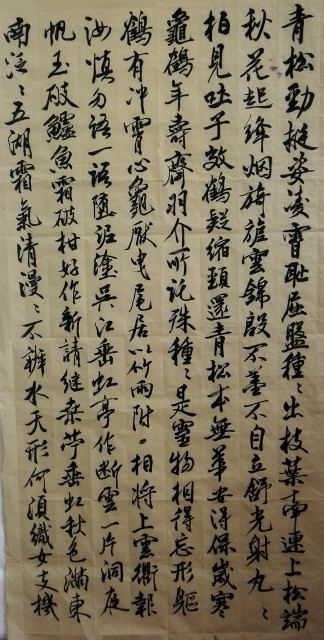 青松勁挺姿凌霄恥屈盤種〻出枝葉牽連上松端
秋花起絳烟旖旎雲錦殷不羞不自立舒光射丸〻
柏見吐子效鶴疑縮頸還青松本無華安得保歲寒
龜鶴年壽齊羽介所託殊種〻是靈物相得忘形軀
鶴有冲霄心龜厭曳尾居以竹兩附口相將上雲衢報
汝慎勿語一語墮泥塗吳江垂虹亭作斷雲一片洞庭
帆玉破鱸魚霜破柑好作新詩繼桑苧垂虹秋色滿東
南泛〻五湖霜氣清漫〻不辨水天形何須織女支機